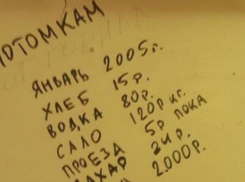 ПОТОМКАМ
ЯНВАРЬ 2005г.
ХЛЕБ 15р.
ВОДКА 80р.
САЛО 120р кг.
ПРОЕЗД 5р ПОКА
САХАР 24р.
2.000р.